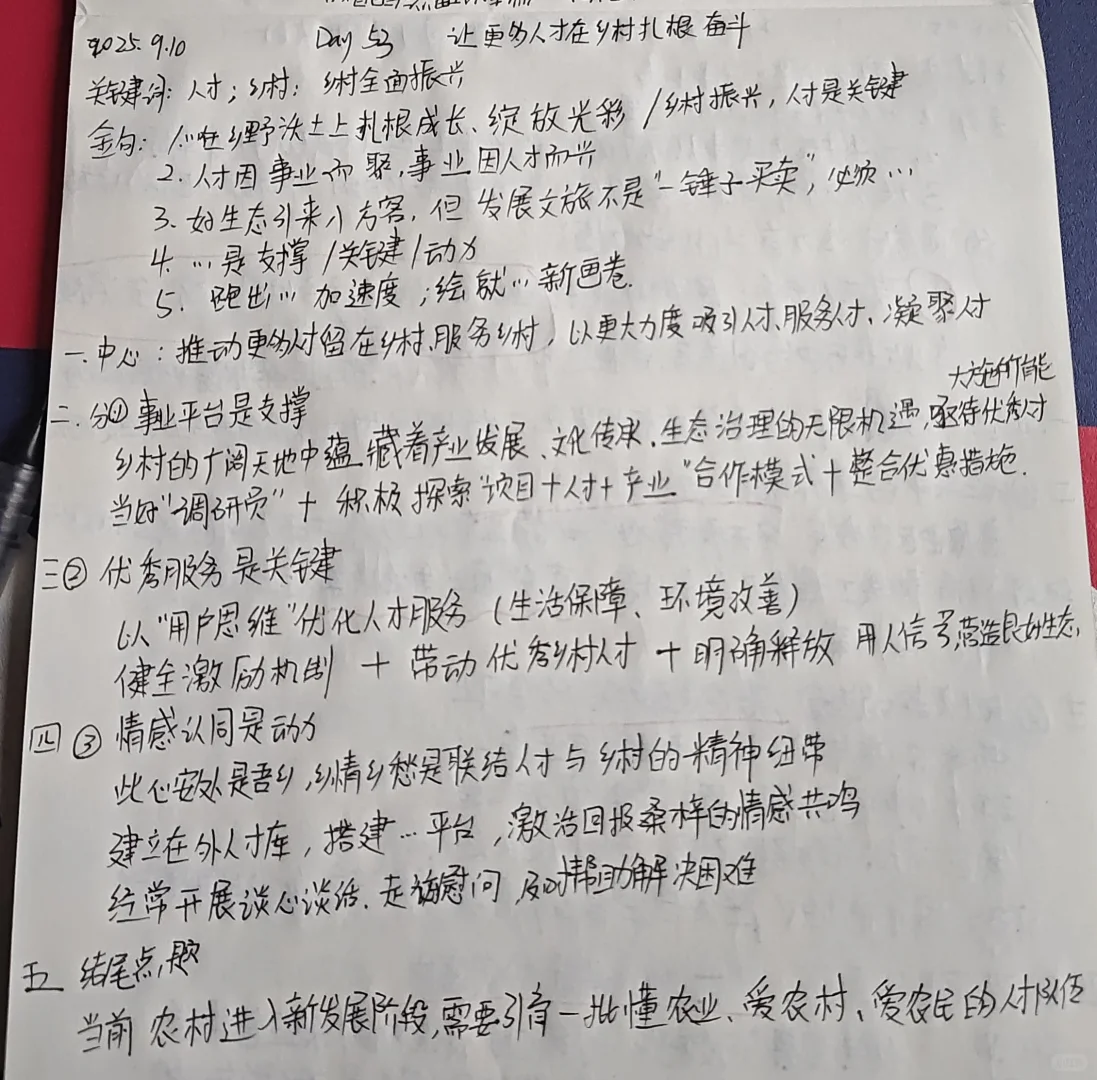 2025.9.10 Day 53 让更多人才在乡村扎根奋斗
关键词：人才；乡村；乡村全面振兴
金句：1.在乡野沃土上扎根成长、绽放光彩 / 乡村振兴，人才是关键
2.人才因事业而聚，事业因人才而兴
3.好生态引来八方客，但发展文旅不是“一锤子买卖”，必须…
4.…是支撑/关键/动力
5.跑出…加速度；绘就…新画卷.
一.中心：推动更多人才留在乡村、服务乡村，以更大力度吸引人才、服务人才、凝聚人才
大施所能
二.分①事业平台是支撑
乡村的广阔天地中蕴藏着产业发展、文化传承、生态治理的无限机遇，亟待优秀人才
当好“调研员”+积极探索“项目+人才+产业”合作模式+整合优惠措施.
三②优秀服务是关键
以“用户思维”优化人才服务（生活保障、环境改善）
健全激励机制+带动优秀乡村人才+明确释放用人信号，营造良好生态，
四③情感认同是动力
此心安处是吾乡，乡情乡愁是联结人才与乡村的精神纽带
建立在外人才库，搭建…平台，激活回报桑梓的情感共鸣
经常开展谈心谈话、走访慰问，及时帮助解决困难
五 结尾点题
当前农村进入新发展阶段，需要引育一批懂农业、爱农村、爱农民的人才队伍